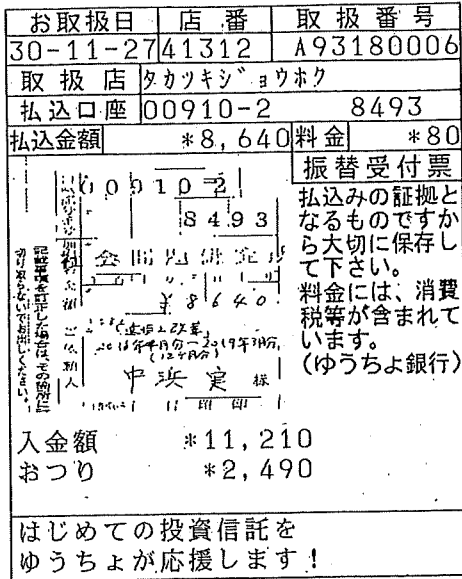 お取扱日 店番 取扱番号
30-11-27 41312 A93180006
取扱店 タカツキジョウホク
払込口座 00910-2 8493
払込金額 *8,640 料金 *80
振替受付票
払込みの証拠と
なるものですか
ら大切に保存し
て下さい。
料金には、消費
税等が含まれて
います。
(ゆうちょ銀行)
00910-2
8493
¥8640
中浜 実 様
記載事項を訂正した場合は、その箇所に
切り取らないでお出しください。
入金額 *11,210
おつり *2,490
はじめての投資信託を
ゆうちょが応援します!